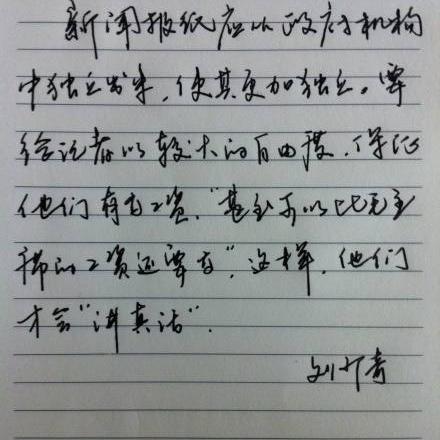 新闻报纸应以政府机构
中独立出来，使其更加独立。要
给记者以较大的自由度，保证
他们有高工资，"甚至可以比毛主
席的工资还要高"，这样，他们
才会"讲真话"．